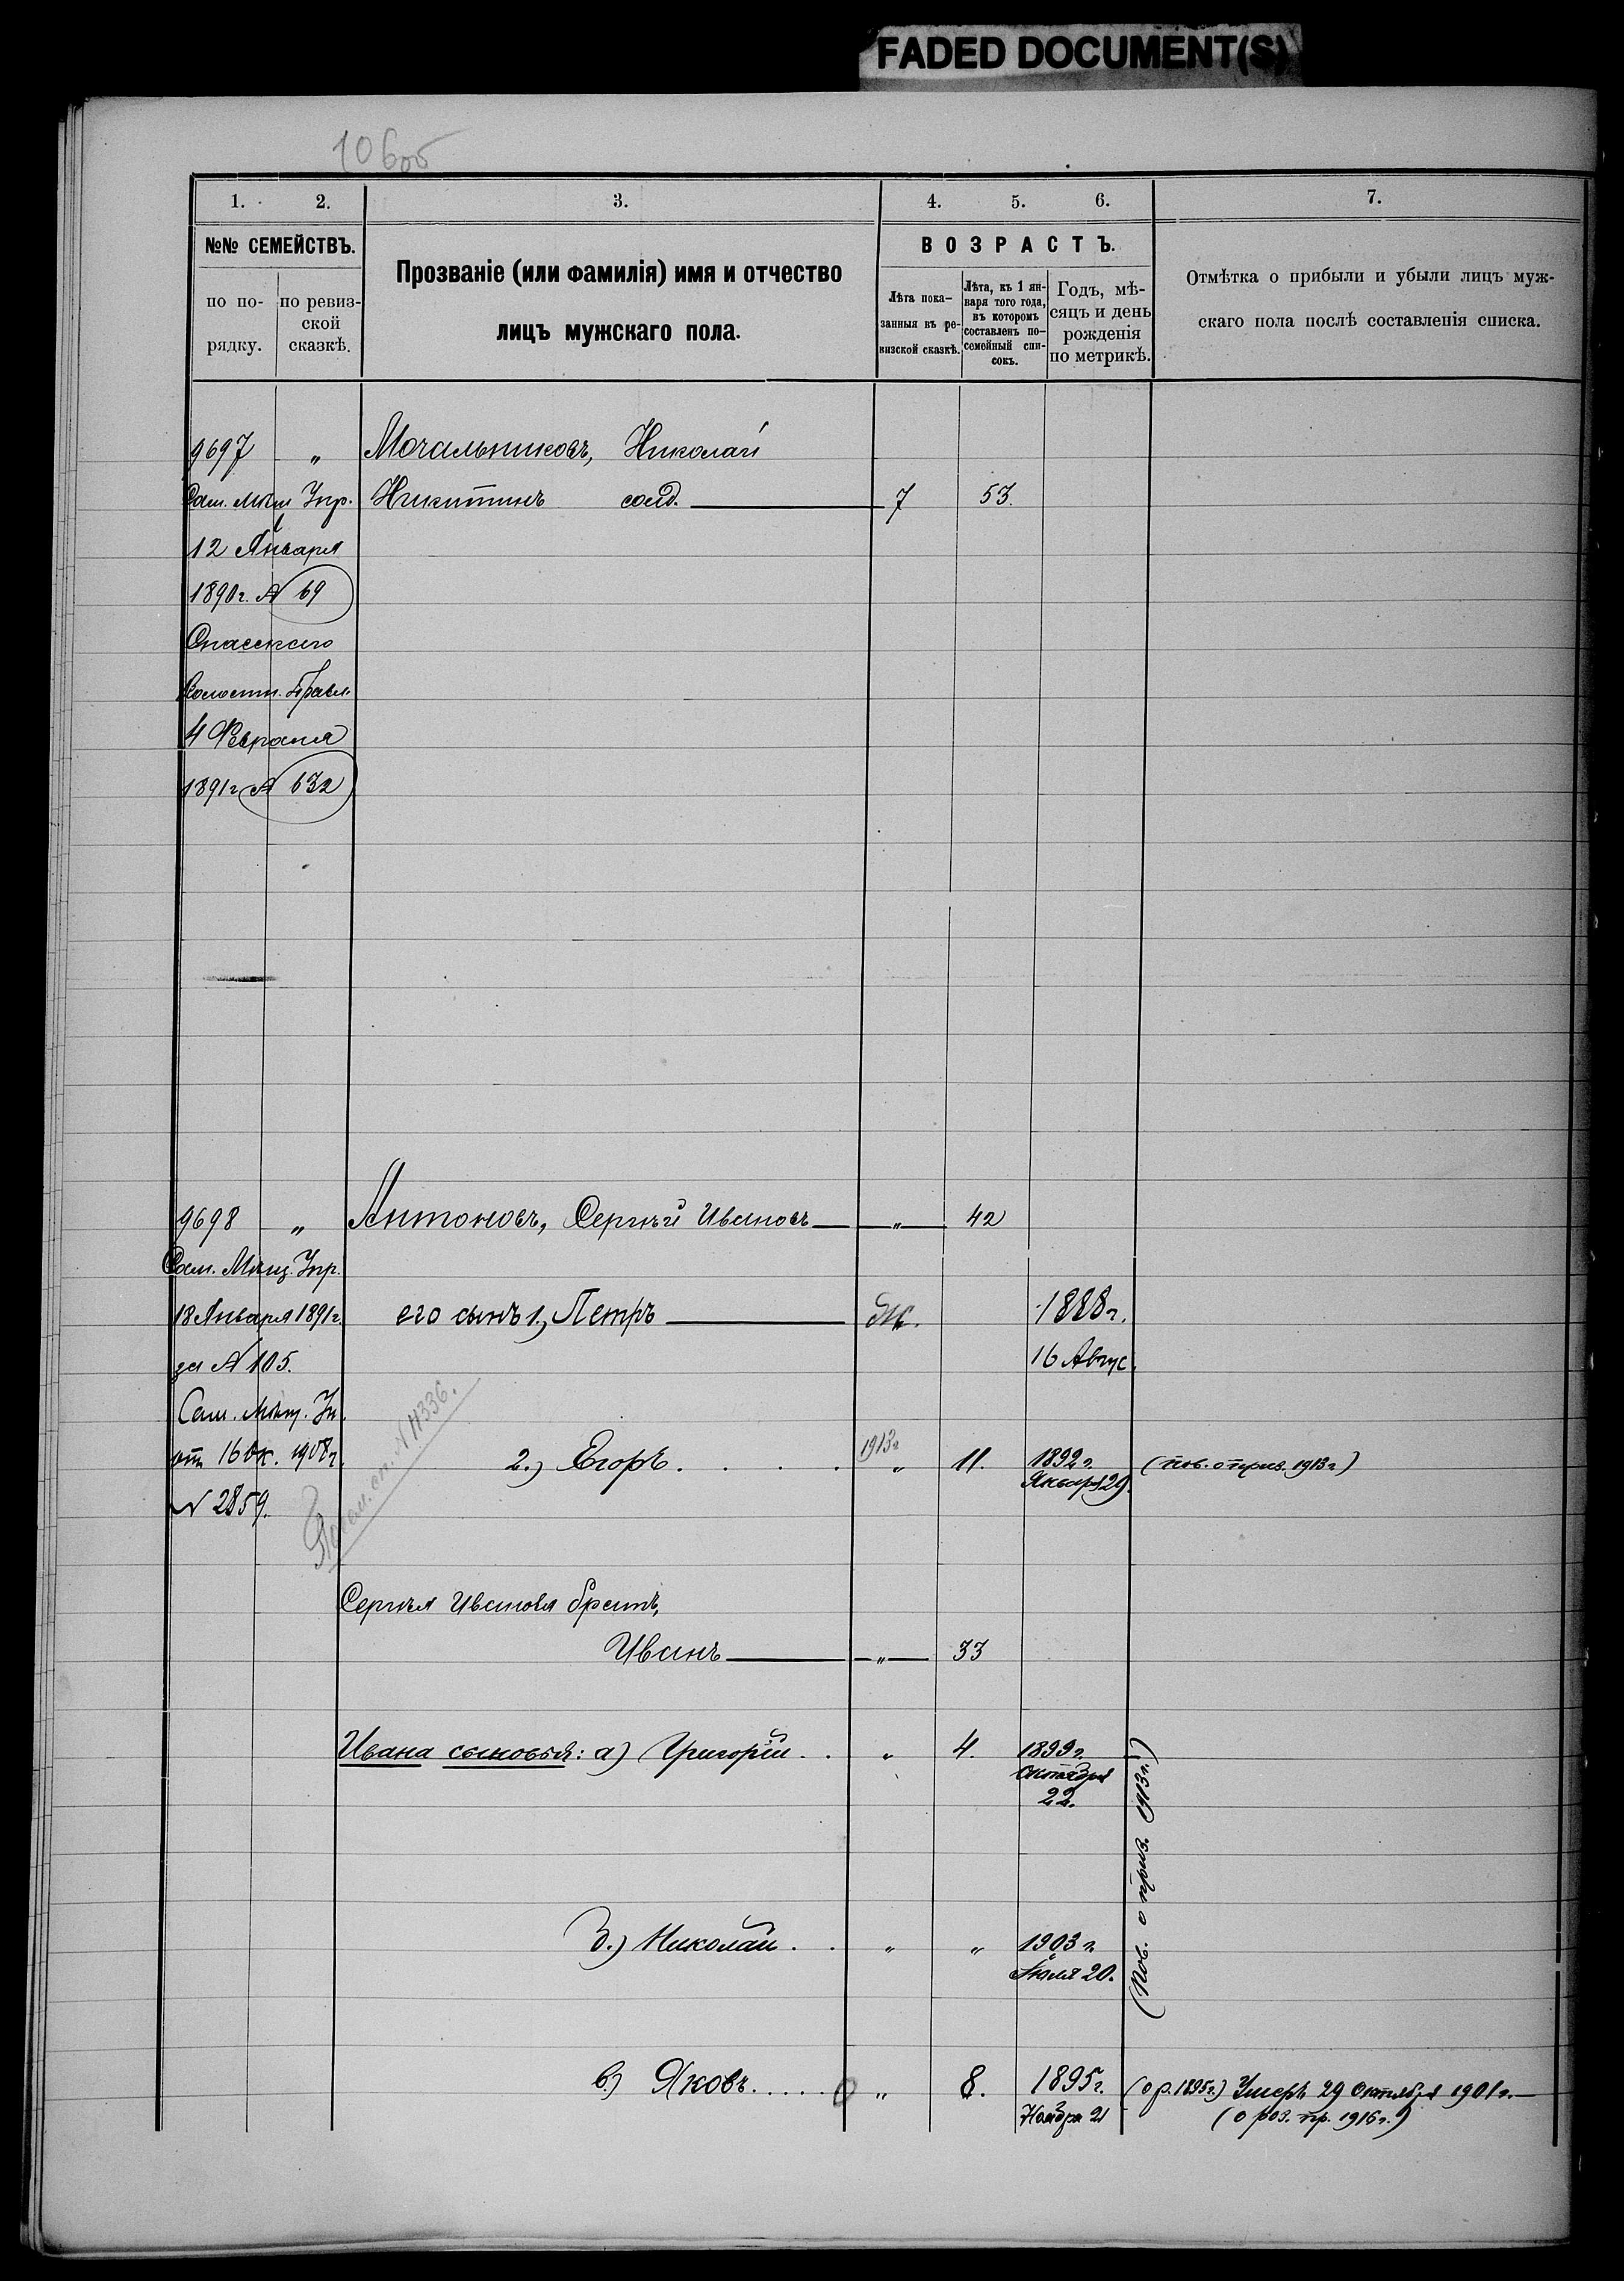 FADED DOCUMENT(S)
106об
1. 2. 3. 4. 5. 6. 7.
№№ СЕМЕЙСТВЪ.
по порядку.
по ревизской сказкѣ.
Прозваніе (или фамилія) имя и отчество
лицъ мужскаго пола.
ВОЗРАСТЪ.
Лѣта показанныя въ ревизской сказкѣ.
Лѣта, къ 1 января того года, въ которомъ составленъ посемейный списокъ.
Годъ, мѣсяцъ и день рожденія по метрикѣ.
Отмѣтка о прибыли и убыли лицъ мужскаго пола послѣ составленія списка.
9697 „ Мочальниковъ, Николай
Сам. Мѣщ. Упр. Никитинъ солд. 7 53.
12 Января
1890г. № 69
Спасскаго
Волостн. Правл.
4 Февраля
1891г № 632
9698 „ Антоновъ, Сергѣй Ивановъ „ 42
Сам. Мѣщ. Упр.
18 Января 1891г. его сынъ 1., Петръ 1888г.
за № 105. 16 Авгус.
Сам. Мѣщ. Уп.
1913г
от 16 Ок. 1908г. 2.) Егоръ . . . . „ 11. 1892г. (пов. о приз. 1913г.)
Января 29.
№ 2859.
№ 11336.
Сергѣя Иванова братъ,
Иванъ „ 33
Ивана сыновья: а) Григорій . . „ 4. 1899г.
Октября
22.
(Пов. о приз. 1913г.)
б.) Николай . . „ „ 1903г.
Іюля 20.
в.) Яковъ . . . . . „ 8. 1895г. (о р. 1895г.) Умеръ 29 Октября 1901г.
Ноября 21 (о роз. пр. 1916г.)